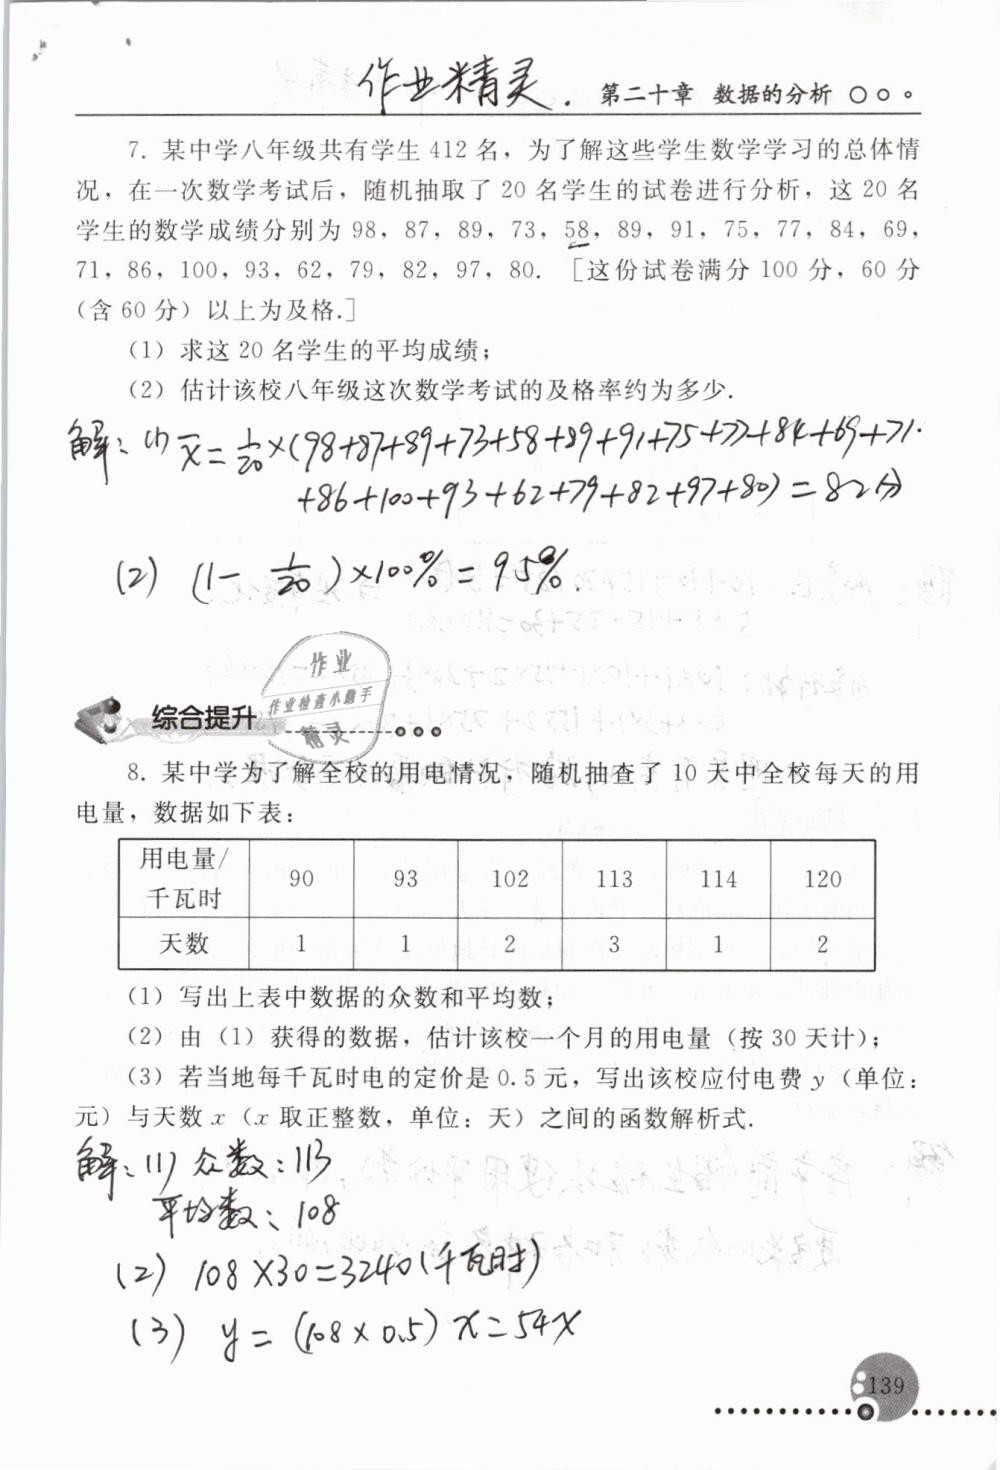 作业精灵.
第二十章 数据的分析
7. 某中学八年级共有学生 412 名，为了解这些学生数学学习的总体情
况，在一次数学考试后，随机抽取了 20 名学生的试卷进行分析，这 20 名
学生的数学成绩分别为 98，87，89，73，58，89，91，75，77，84，69，
71，86，100，93，62，79，82，97，80. ［这份试卷满分 100 分，60 分
（含 60 分）以上为及格.］
（1）求这 20 名学生的平均成绩；
（2）估计该校八年级这次数学考试的及格率约为多少.
解：(1) x̄ = 1/20 ×(98+87+89+73+58+89+91+75+77+84+69+71
+86+100+93+62+79+82+97+80) = 82分
(2) (1- 1/20)×100% = 95%.
综合提升
作业
作业检查小助手
精灵
8. 某中学为了解全校的用电情况，随机抽查了 10 天中全校每天的用
电量，数据如下表：
用电量/ 90 93 102 113 114 120
千瓦时
天数 1 1 2 3 1 2
（1）写出上表中数据的众数和平均数；
（2）由（1）获得的数据，估计该校一个月的用电量（按 30 天计）；
（3）若当地每千瓦时电的定价是 0.5 元，写出该校应付电费 y（单位：
元）与天数 x（x 取正整数，单位：天）之间的函数解析式.
解：(1) 众数：113
平均数：108
(2) 108×30=3240(千瓦时)
(3) y=(108×0.5)x=54x
139